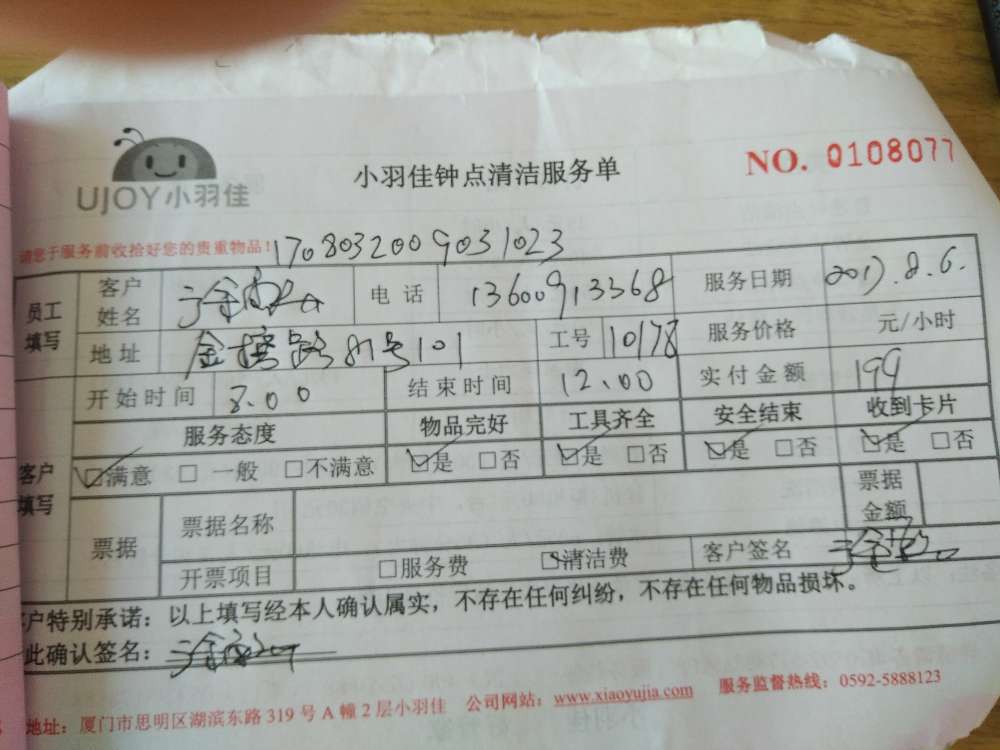 UJOY小羽佳
小羽佳钟点清洁服务单
NO. 0108077
请您于服务前收拾好您的贵重物品!
1708032009031023
员工填写 客户姓名 电话 13600913368 服务日期 2017.8.6.
地址 金榜路81号101 工号 10178 服务价格 元/小时
开始时间 8.00 结束时间 12.00 实付金额 199
客户填写 服务态度 物品完好 工具齐全 安全结束 收到卡片
☑满意 □一般 □不满意 ☑是 □否 ☑是 □否 ☑是 □否 ☑是 □否
票据 票据名称 票据金额
开票项目 □服务费 ☑清洁费 客户签名
客户特别承诺：以上填写经本人确认属实，不存在任何纠纷，不存在任何物品损坏。
此确认签名：
地址：厦门市思明区湖滨东路319号A幢2层小羽佳 公司网站：www.xiaoyujia.com 服务监督热线：0592-5888123